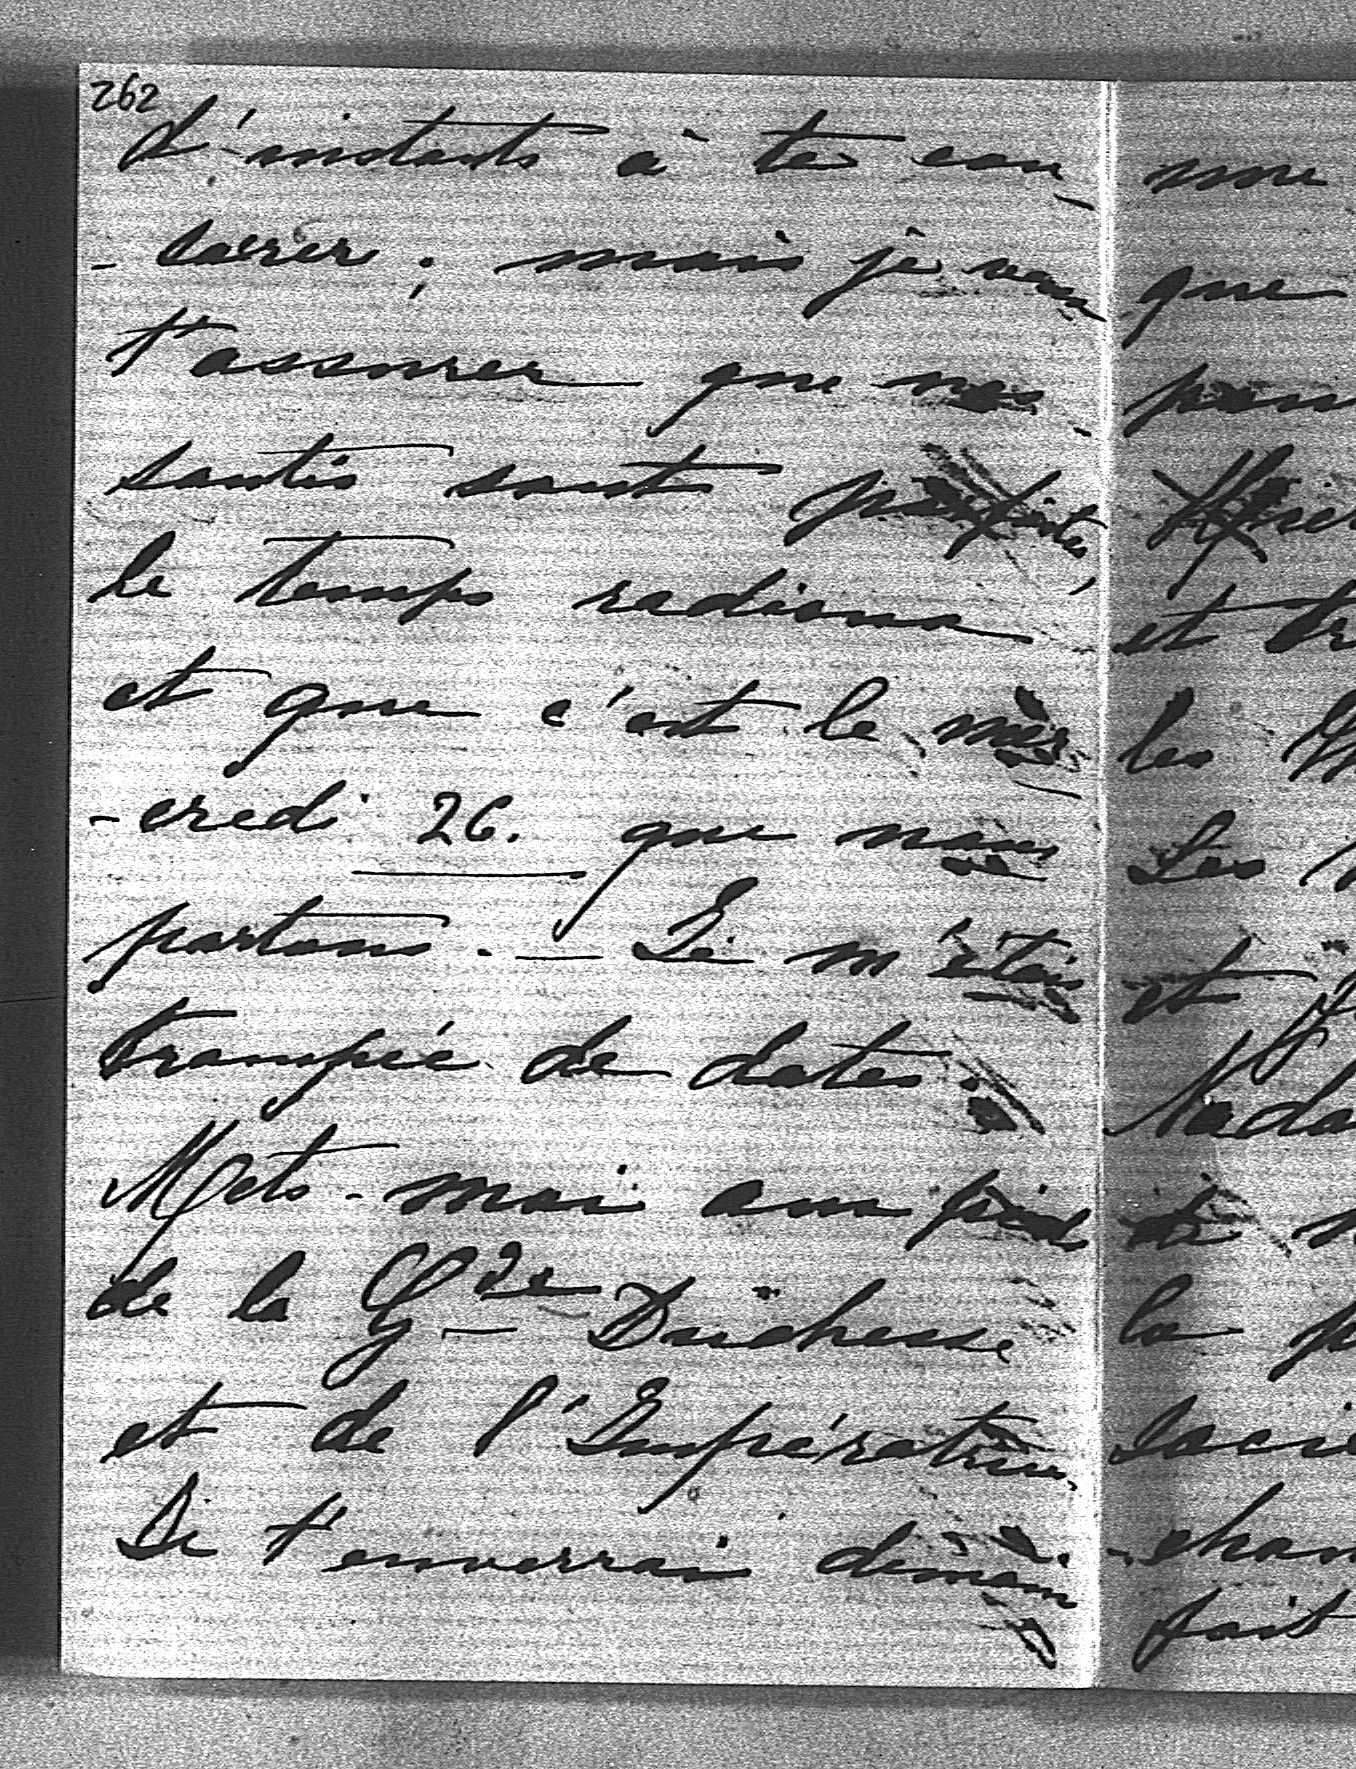 262
d'instants à te con
- sacrer ; mais je veux
t'assurer que nos
santés sont parfaites,
le temps radieux
et que c'est le mer
- credi 26. que nous
partons. — Je m'étais
trompée de dates.
Mets-moi aux pieds
de la Gde Duchesse
et de l'Impératrice.
Je t'enverrai demain
que
et
les
Les
et
de
la
fait